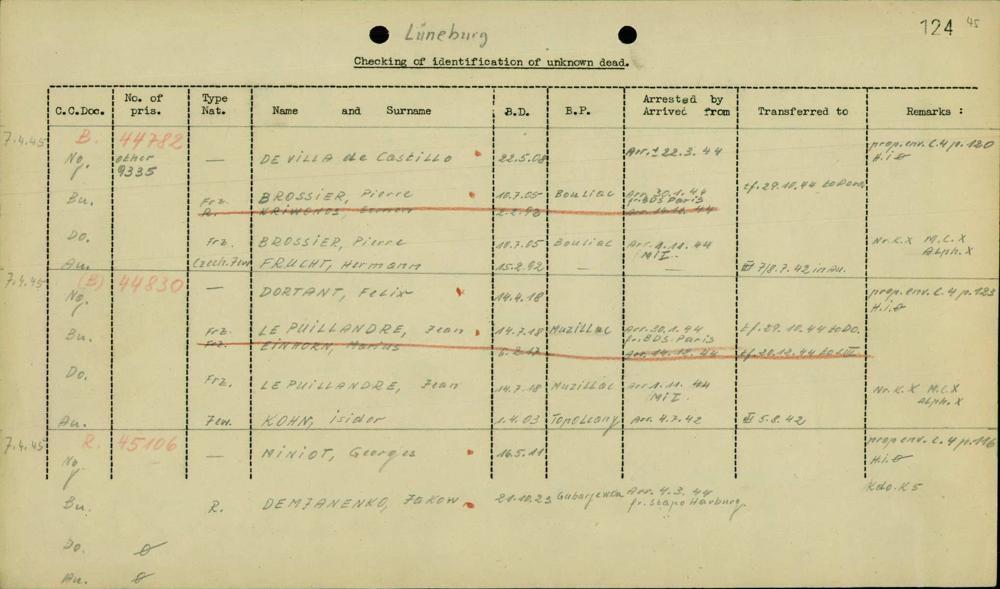 Lüneburg
124 45
Checking of identification of unknown dead.
C.C.Doc. No. of pris. Type Nat. Name and Surname B.D. B.P. Arrested by Arrived from Transferred to Remarks :
7.4.45 B. 44782 prop.env. C.4 p.120
Ng. other 9335 — DE VILLA de Castillo 22.5.08 Arr. ± 22.3.44 H.i.
Bu. Frz. BROSSIER, Pierre 10.7.05 Bouliac Arr. 30.1.44 fr. BDS Paris tf. 29.10.44 to Dora
R. KRIWONOS, 2.2.93 Arr. 14.12.44
Do. Frz. BROSSIER, Pierre 10.7.05 Bouliac Arr. 1.11.44 Mi I. Nr. K.X M.C.X Alph.X
Au. Czech.Jew FRUCHT, Hermann 15.2.92 — — III 7/8.7.42 in Au.
7.4.45 (B) 44830 prop.env. C.4 p.123
Ng. — DORTANT, Felix 14.4.18 H.i.
Bu. Frz. LE PUILLANDRE, Jean 14.7.18 Muzillac Arr. 30.1.44 fr. BDS Paris tf. 29.10.44 to Do.
Frz. EINHORN, Marius 6.2.17 Arr. 14.12.44 tf. 20.12.44 to
Do. Frz. LE PUILLANDRE, Jean 14.7.18 Muzillac Arr. 1.11.44 Mi I. Nr. K.X M.C.X Alph.X
Au. Jew. KOHN, isidor 1.4.03 Topolcany Arr. 4.7.42 III 5.8.42
7.4.45 R. 45106 prop env. C.4 p.116
Ng — MINIOT, Georges 16.5.11 H.i.
Kdo. K5
Bu. R. DEMJANENKO, Jakow 21.10.23 Gubarjewka Arr. 4.3.44 fr. Stapo Harburg
Do. ø
Au. ø